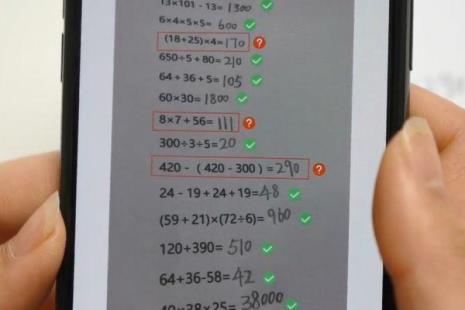 13×101-13=1300
6×4×5×5=600
(18+25)×4=170
650÷5+80=210
64+36+5=105
60×30=1800
8×7+56=111
300÷3÷5=20
420-(420-300)=290
24-19+24+19=48
(59+21)×(72÷6)=960
120+390=510
64+36-58=42
40×38×25=38000